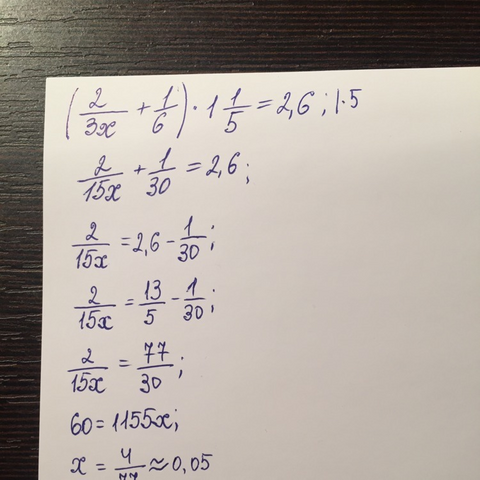 (2/3x + 1/6) · 1 1/5 = 2,6 ; |·5
2/15x + 1/30 = 2,6 ;
2/15x = 2,6 - 1/30 ;
2/15x = 13/5 - 1/30 ;
2/15x = 77/30 ;
60 = 1155x ;
x = 4/77 ≈ 0,05